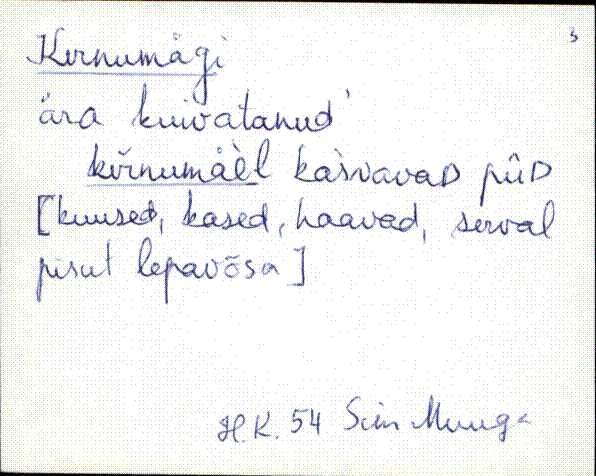 3
Kõrnumägi
ära kuivatanud
kõrnumäèl kàsvavaD pûD
[kuused, kased, haavad, serval
pisut lepavõsa]
H.K. 54 Siim Muuga